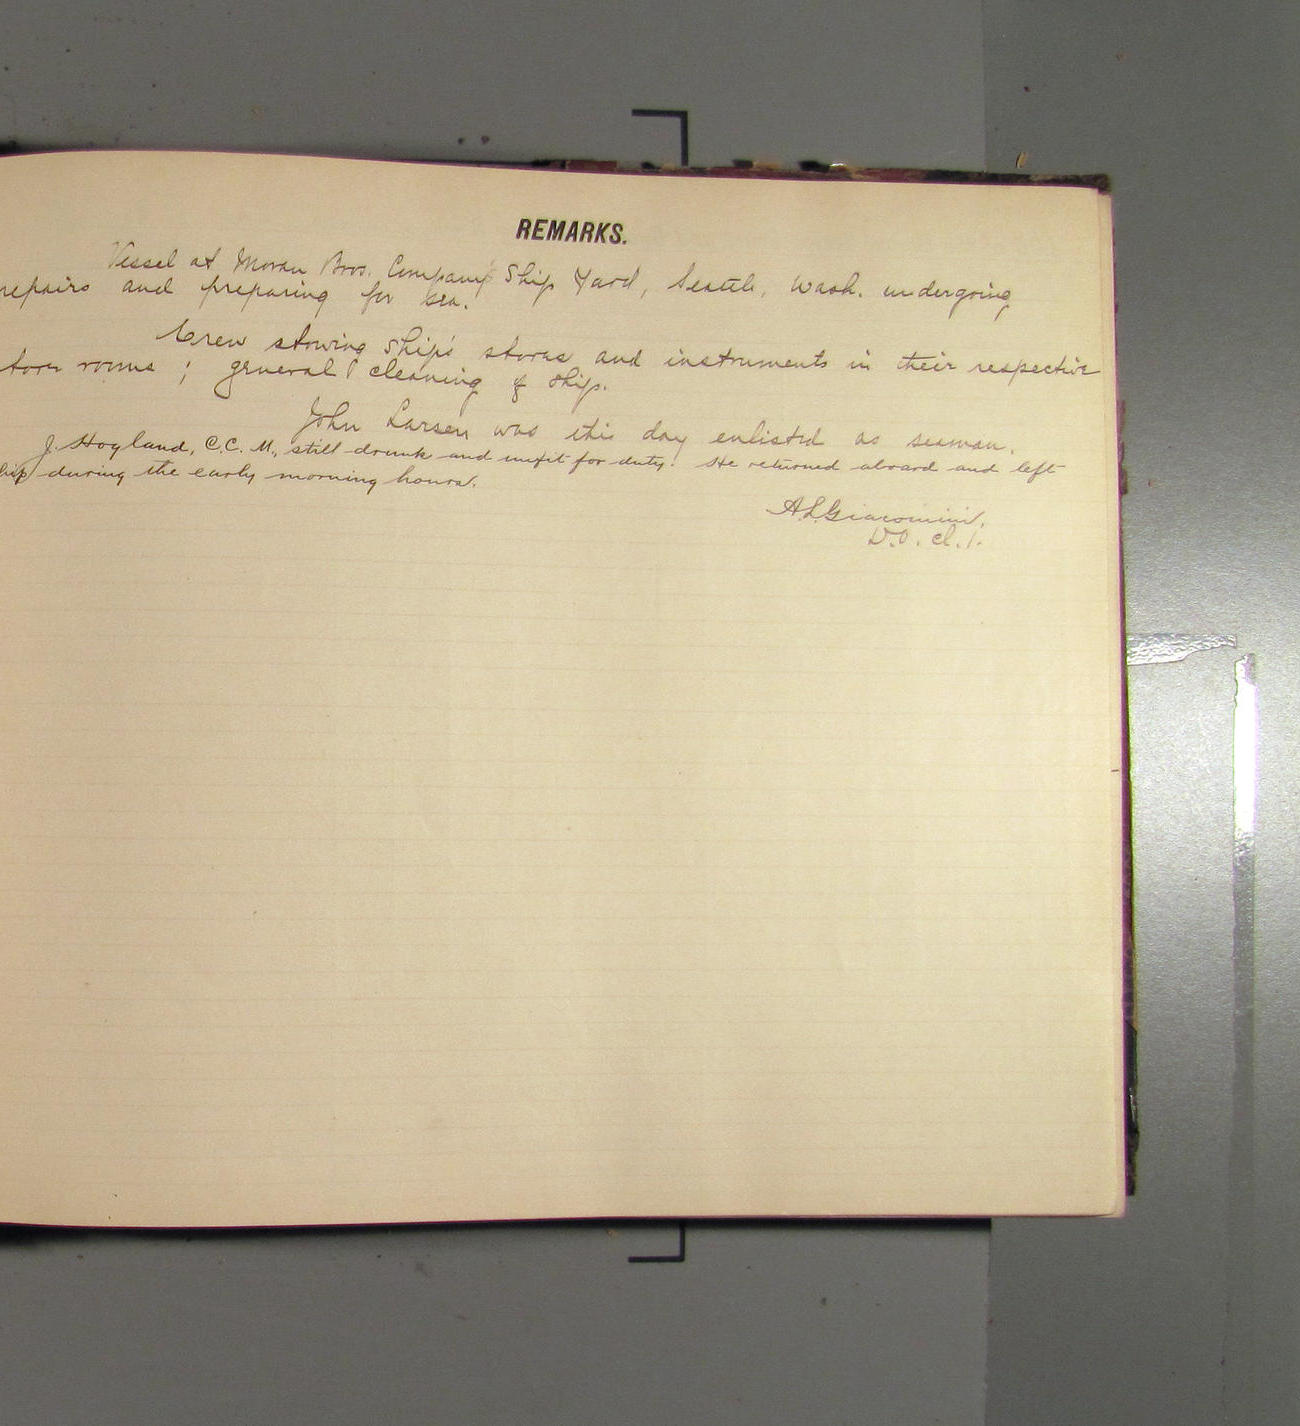 REMARKS.
Vessel at Moran Bros. Company Ship Yard, Seattle, Wash. undergoing
repairs and preparing for sea.
Crew stowing ship's stores and instruments in their respective
tore rooms ; general cleaning of ship.
John Larsen was this day enlisted as seaman.
J. Hoyland, C.C.M., still drunk and unfit for duty. He returned aboard and left
hip during the early morning hours.
A.L. Giacomini.
D.O. cl. 1.